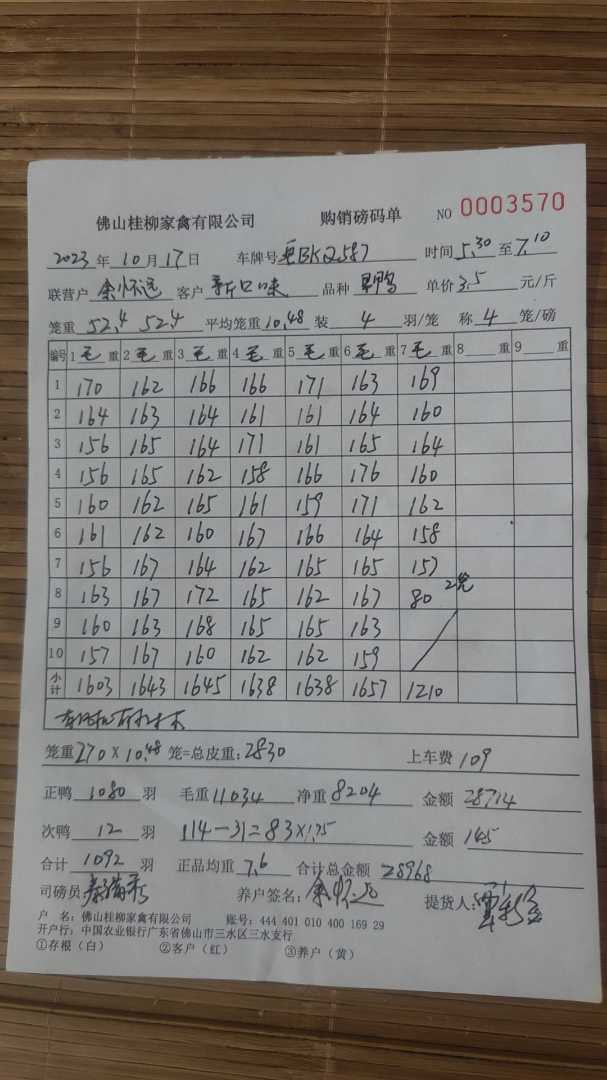 佛山桂柳家禽有限公司 购销磅码单 NO 0003570
2023 年 10 月 17 日 车牌号 BK2587 时间 5.30 至 7.10
联营户 余怀远 客户 新口味 品种 鸭 单价 3.5 元/斤
笼重 52.4 52.4 平均笼重 10.48 装 4 羽/笼 称 4 笼/磅
编号 1 毛 重 2 毛 重 3 毛 重 4 毛 重 5 毛 重 6 毛 重 7 毛 重 8 重 9 重
1 170 162 166 166 171 163 169
2 164 163 164 161 161 164 160
3 156 165 164 171 161 165 164
4 156 165 162 158 166 176 160
5 160 162 165 161 159 171 162
6 161 162 160 167 166 164 158
7 156 167 164 162 165 165 157
8 163 167 172 165 162 167 80 2笼
9 160 163 168 165 165 163
10 157 167 160 162 162 159
小计 1603 1643 1645 1638 1638 1657 1210
笼重 270×10.48 笼=总皮重: 2830 上车费 109
正鸭 1080 羽 毛重 11034 净重 8204 金额 28714
次鸭 12 羽 114-31=83×1.75 金额 145
合计 1092 羽 正品均重 7.6 合计总金额 28968
司磅员: 养户签名: 余怀远 提货人:
户 名: 佛山桂柳家禽有限公司 账号: 444 401 010 400 169 29
开户行: 中国农业银行广东省佛山市三水区三水支行
①存根(白) ②客户(红) ③养户(黄)